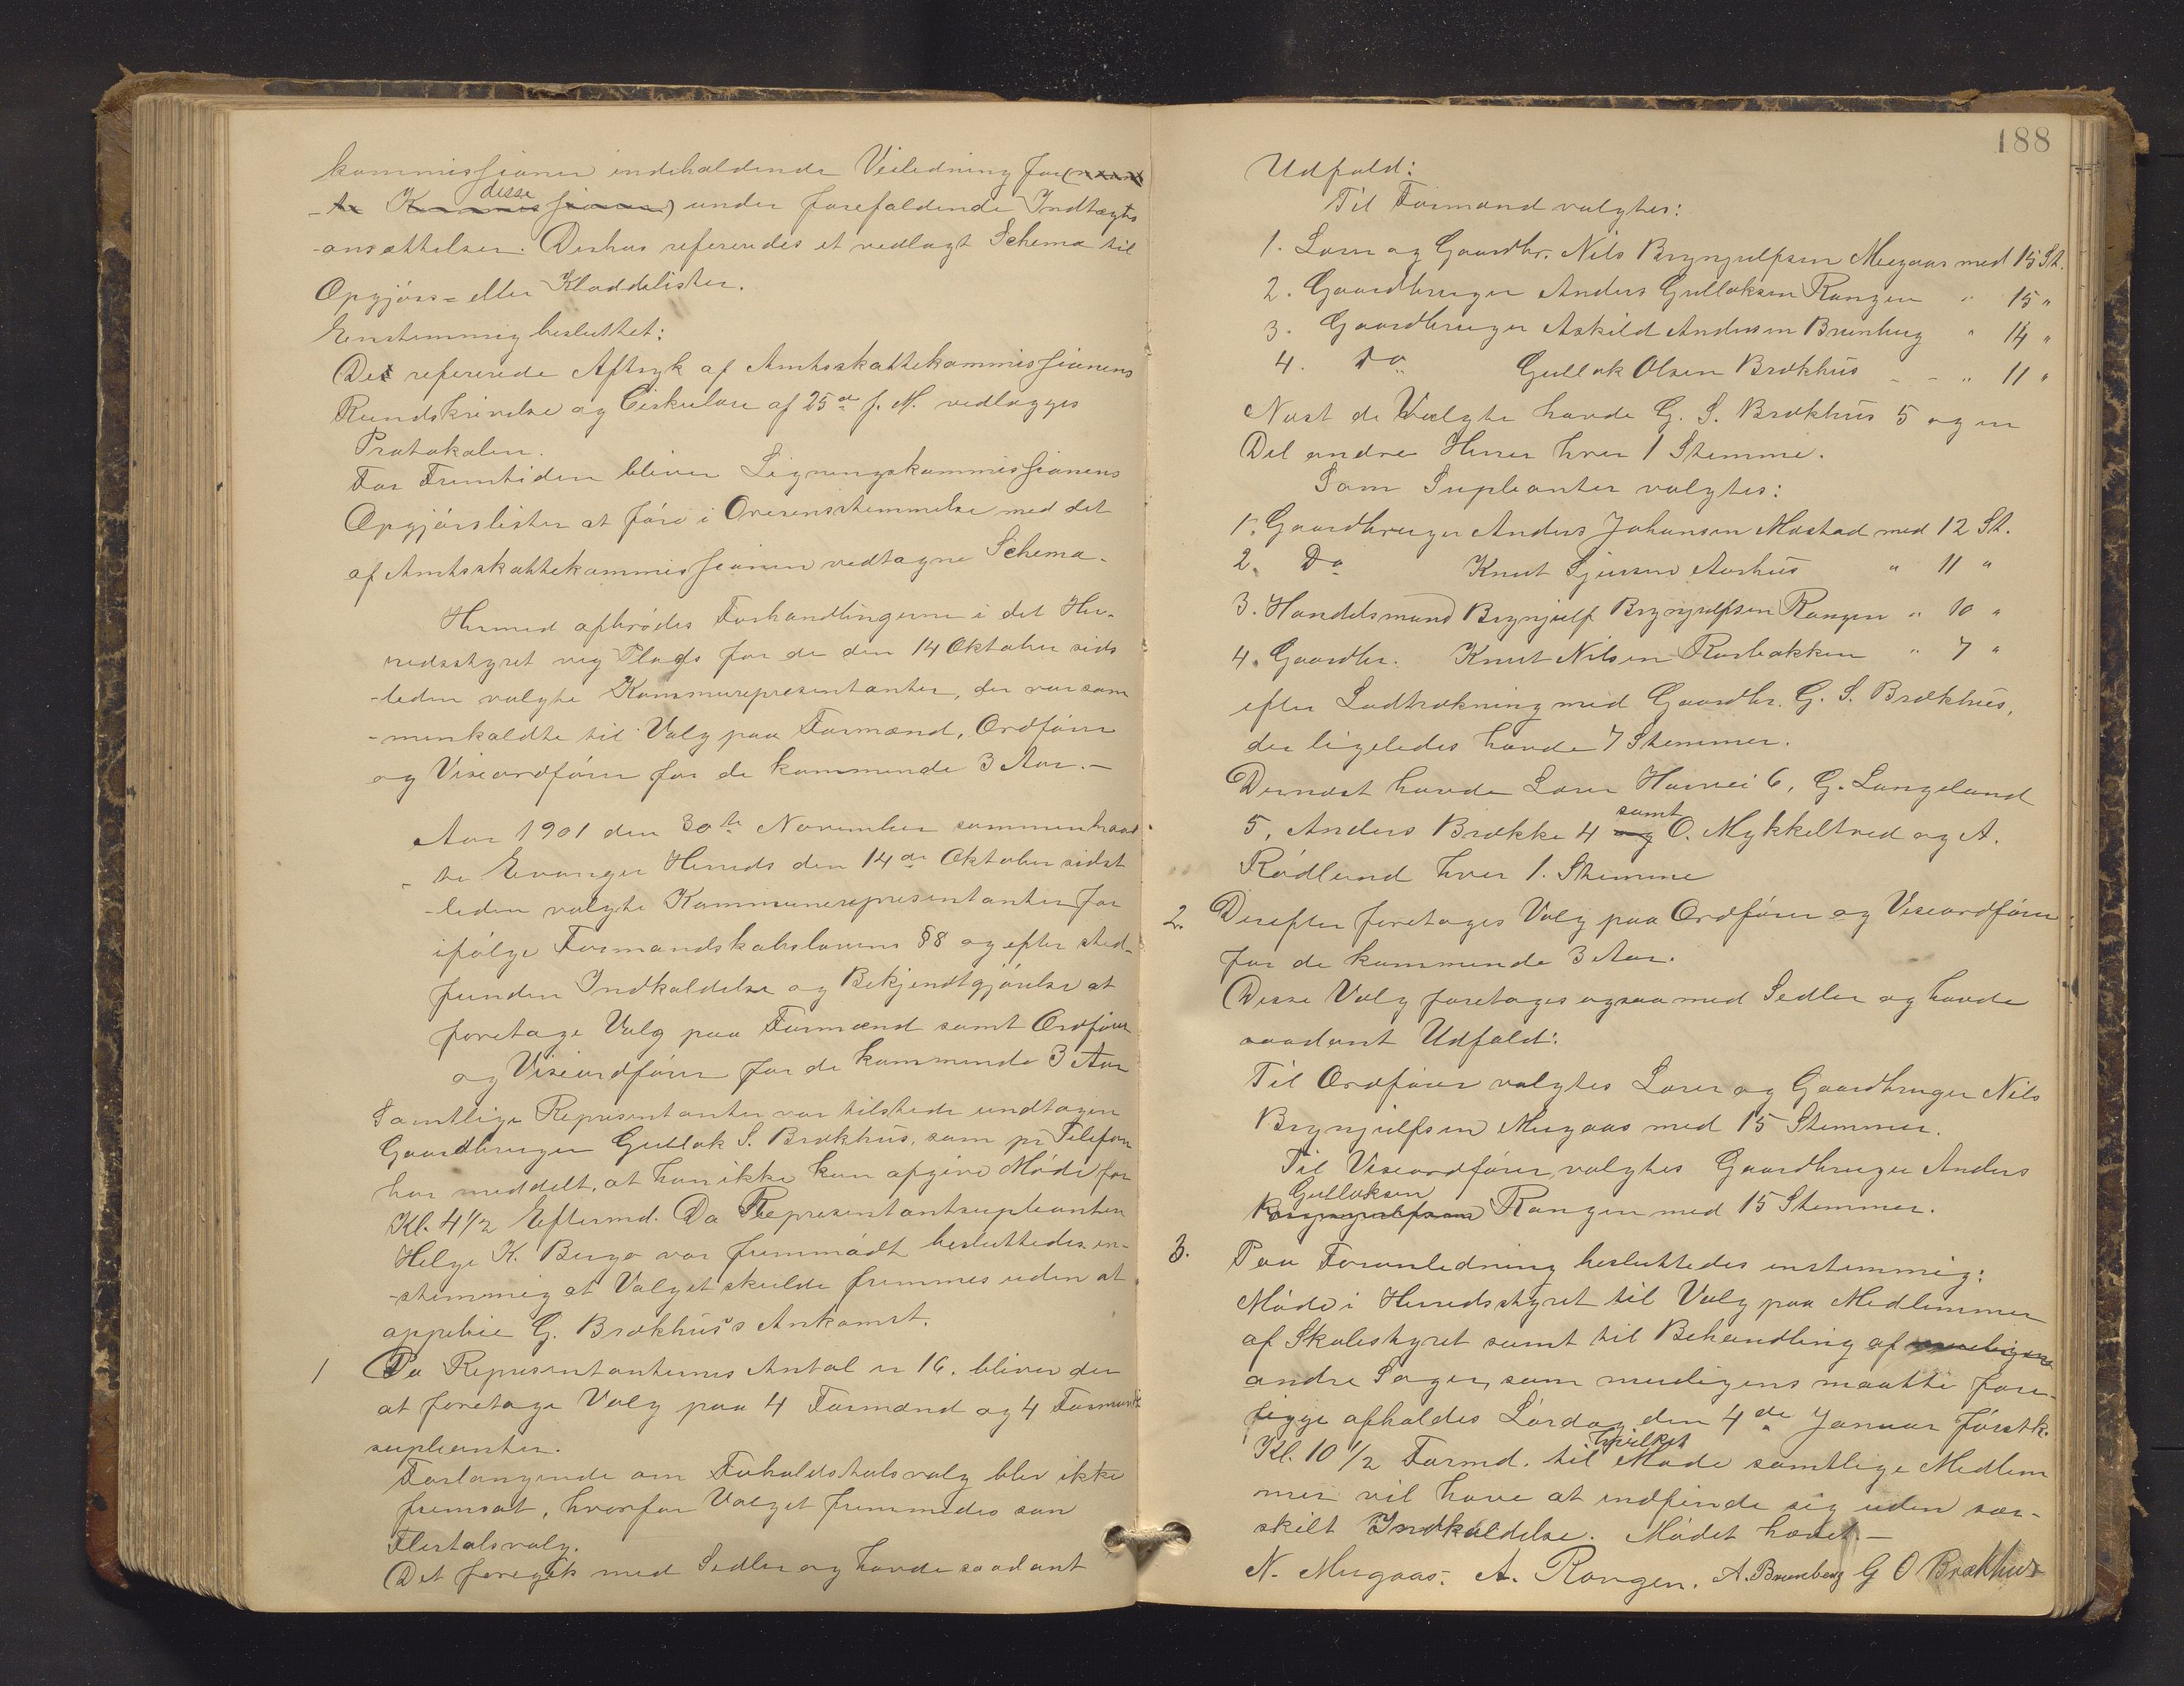 kommissioner indeholdende Veiledning for
disse
under forefaldende Indtægts
-ansættelser. Derhos refereredes et vedlagt Schema til
Opgjørs- eller Kladdelister.
Enstemmig besluttet:
Det refererede Aftryk af Amtsskattekommissionens
Rundskrivelse og Cirkulære af 25de f. M. vedlægges
Protokolen.
For Fremtiden bliver Ligningskommissionens
Opgjørslister at føre i Overensstemmelse med det
af Amtsskattekommissionen vedtagne Schema.
Hermed afbrødes Forhandlingerne i det Her-
redsstyret veg Plads for de den 14 Oktober sids
-leden valgte Kommurepresentanter, der var sam
-menkaldte til Valg paa Formænd, Ordfører
og Viseordfører for de kommende 3 Aar. -
Aar 1901 den 30te November sammentraad
-te Evanger Herreds den 14de Oktober sidst
-leden valgte Kommunerepresentanter for
ifølge Formandskabslovens §8 og efter sted-
funden Indkaldelse og Bekjendtgjørelse at
foretage Valg paa Formænd samt Ordfører
og Viseordfører for de kommende 3 Aar
Samtlige Representanter var tilstede undtagen
Gaardbruger Gullak S. Brækhus, som pr Telefon
har meddelt, at han ikke kan afgive Møde før
Kl. 4 1/2 Eftermd. Da Representantsupleanten
Helge K. Berge var fremmødt besluttedes en-
-stemmig at Valget skulde fremmes uden at
oppebie G. Brækhus's Ankomst.
1 Da Representanternes Antal er 16. bliver der
at foretage Valg paa 4 Formænd og 4 Formands
supleanter.
Forlangende om Foholdstalsvalg blev ikke
fremsat, hvorfor Valget fremmedes som
Flertalsvalg.
Det foregik med Sedler og havde saadant
188
Udfald:
Til Formænd valgtes:
1. Lærer og Gaardbr. Nils Brynjulfsen Mugaas med 15 St.
2. Gaardbruger Anders Gullaksen Rangen " 15 "
3. Gaardbruger Askild Andersen Brunberg " 14 "
4. Do Gullak Olsen Brækhus - - " 11 "
Næst de Valgte havde G. S. Brækhus 5 og en
Del andre Herrer hver 1 Stemme.
Som Supleanter valgtes:
1. Gaardbruger Anders Johansen Mæstad med 12 St.
2. Do Knut Sjursen Aarhus " 11 "
3. Handelsmand Brynjulf Brynjulfsen Rangen " 10 "
4. Gaardbr. Knut Nilsen Rasbakken " 7 "
efter Lodtrækning med Gaardbr. G. S. Brækhus,
der ligeledes havde 7 Stemmer.
Dernæst havde Lærer Horvei 6, G. Langeland
samt
5, Anders Brække 4 og O. Mykkeltved og A.
Rødlund hver 1. Stemme
2. Derefter foretoges Valg paa Ordfører og Viseordfører
for de kommende 3 Aar.
Disse Valg foretoges ogsaa med Sedler og havde
saadant Udfald:
Til Ordfører valgtes Lærer og Gaardbruger Nils
Brynjulfsen Mugaas med 15 Stemmer.
Til Viseordfører, valgtes Gaardbruger Anders
Gullaksen
Brynjulfsen Rangen med 15 Stemmer.
3. Paa Foranledning besluttedes enstemmig:
Møde i Herredsstyret til Valg paa Medlemmer
af Skolestyret samt til Behandling af muligens
andre Sager, som muligens maatte fore-
ligge afholdes Lørdag den 4de Januar førstk.
hvilket
Kl. 10 1/2 Formd. til Møde samtlige Medlem
mer vil have at indfinde sig uden sær-
skilt Indkaldelse. Mødet hævet. -
N. Mugaas. A. Rangen. A. Brunberg G O Brækhus